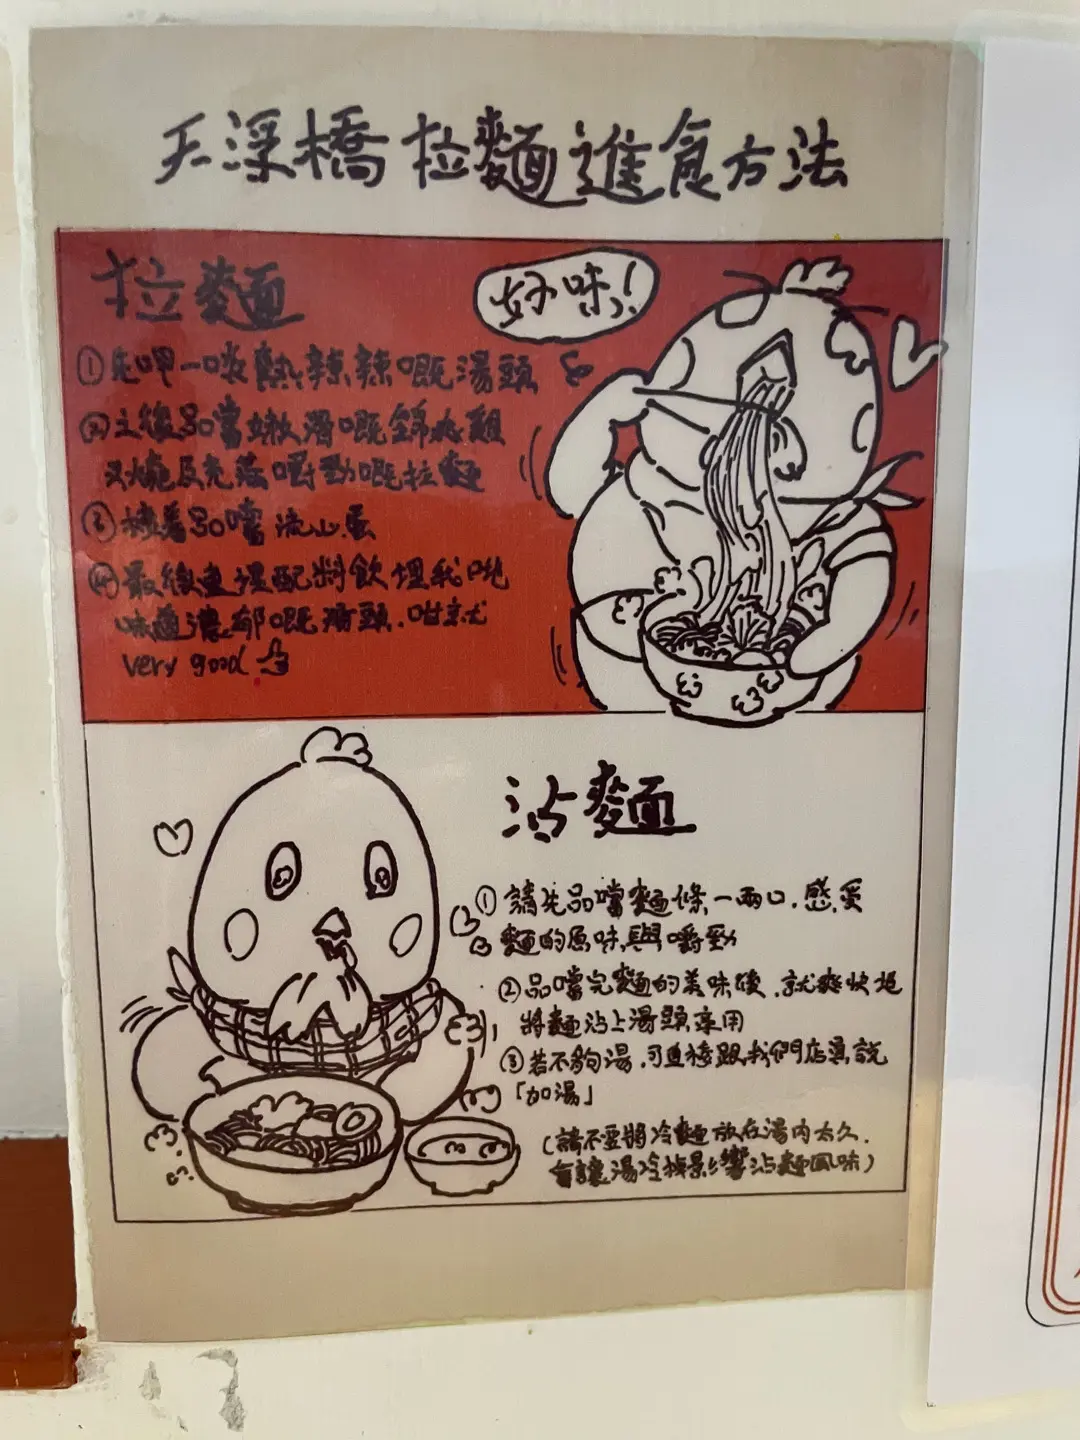 天浮橋 拉麵進食方法
拉麵
好味!
①先呷一啖熱辣辣嘅湯頭
②之後品嚐嫩滑嘅錦水雞
叉燒及充滿嚼勁嘅拉麵
③接著品嚐流心蛋
④最後連埋配料飲埋我哋
味道濃郁嘅湯頭.咁就
very good
沾麵
①請先品嚐麵條一兩口.感受
麵的原味與嚼勁
②品嚐完麵的美味後.就爽快地
將麵沾上湯頭享用
③若不夠湯.可直接跟我們店員說
「加湯」
(請不要將冷麵放在湯內太久.
會讓湯冷掉影響沾麵風味)